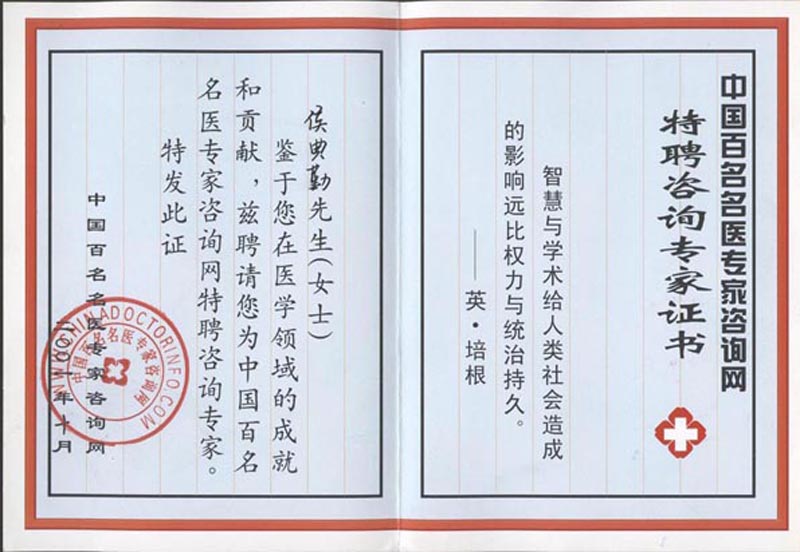 中国百名名医专家咨询网
特聘咨询专家证书
智慧与学术给人类社会造成
的影响远比权力与统治持久。
——英·培根
侯典勤先生(女士)
鉴于您在医学领域的成就
和贡献，兹聘请您为中国百名
名医专家咨询网特聘咨询专家。
特发此证
中国百名名医专家咨询网
年十月
WWW.CHINADOCTORINFO.COM
中国百名名医专家咨询网